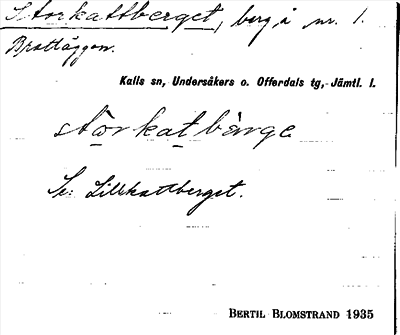 Storkattberget, berg å nr. 1.
Brattåggen.
Kalls sn, Undersåkers o. Offerdals tg, Jämtl. l.
stòrkatbàrge
Se: Lillkattberget.
BERTIL BLOMSTRAND 1935